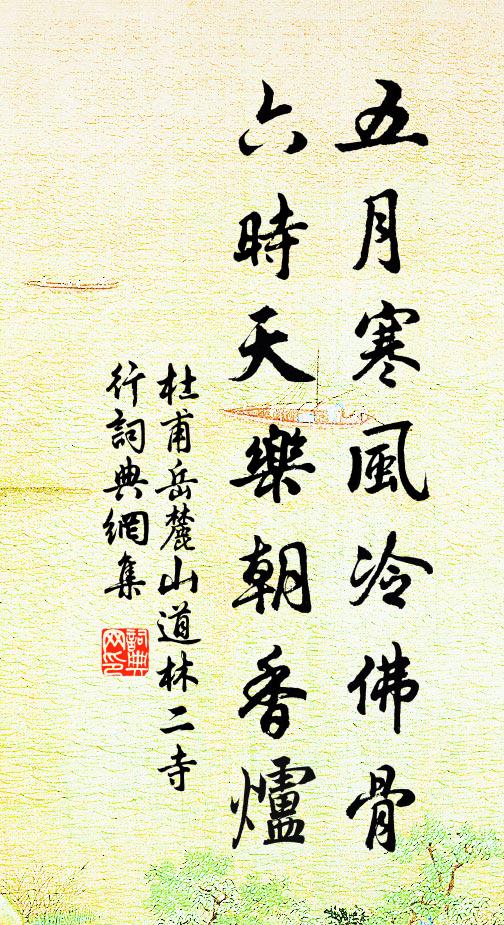 五月寒風冷佛骨
六時天樂朝香爐
杜甫岳麓山道林二寺
行詞典網集
詞典
网印